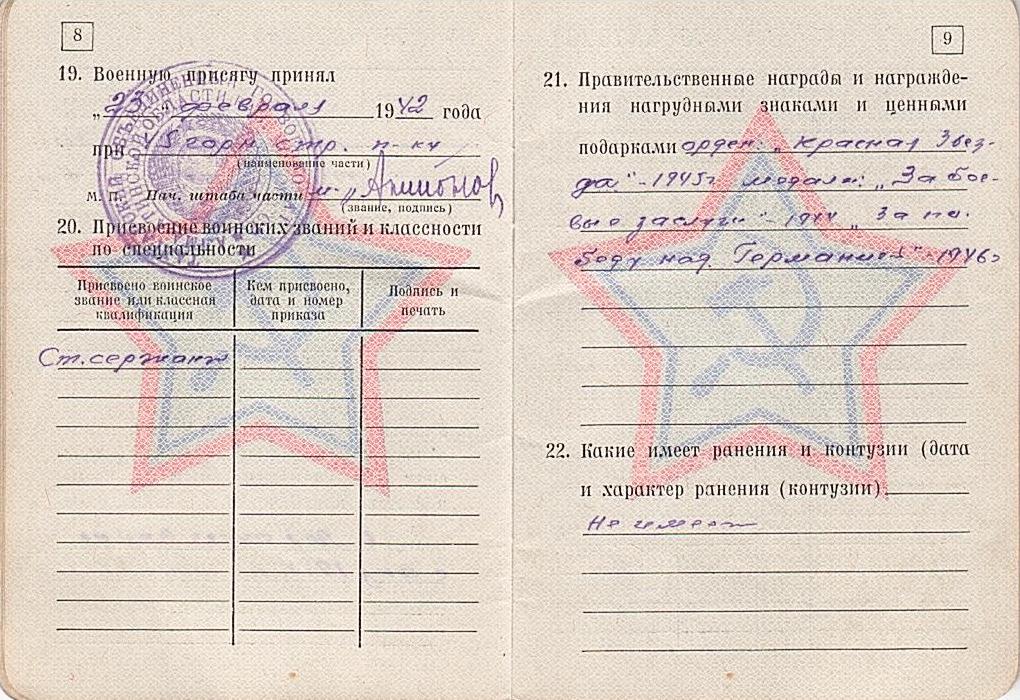 8
19. Военную присягу принял
„23" февраля 1942 года
при 5 горн стр. п-ку
(наименование части)
М. П. Нач. штаба части
(звание, подпись)
20. Присвоение воинских званий и классности
по специальности
Присвоено воинское звание или классная квалификация
Кем присвоено, дата и номер приказа
Подпись и печать
Ст. сержант
9
21. Правительственные награды и награжде-
ния нагрудными знаками и ценными
подарками орден: „Красная Звез-
да" - 1945г медали: „За бое-
вые заслуги" - 1944 „За по-
беду над Германией" - 1946г
22. Какие имеет ранения и контузии (дата
и характер ранения (контузии)
Не имеет